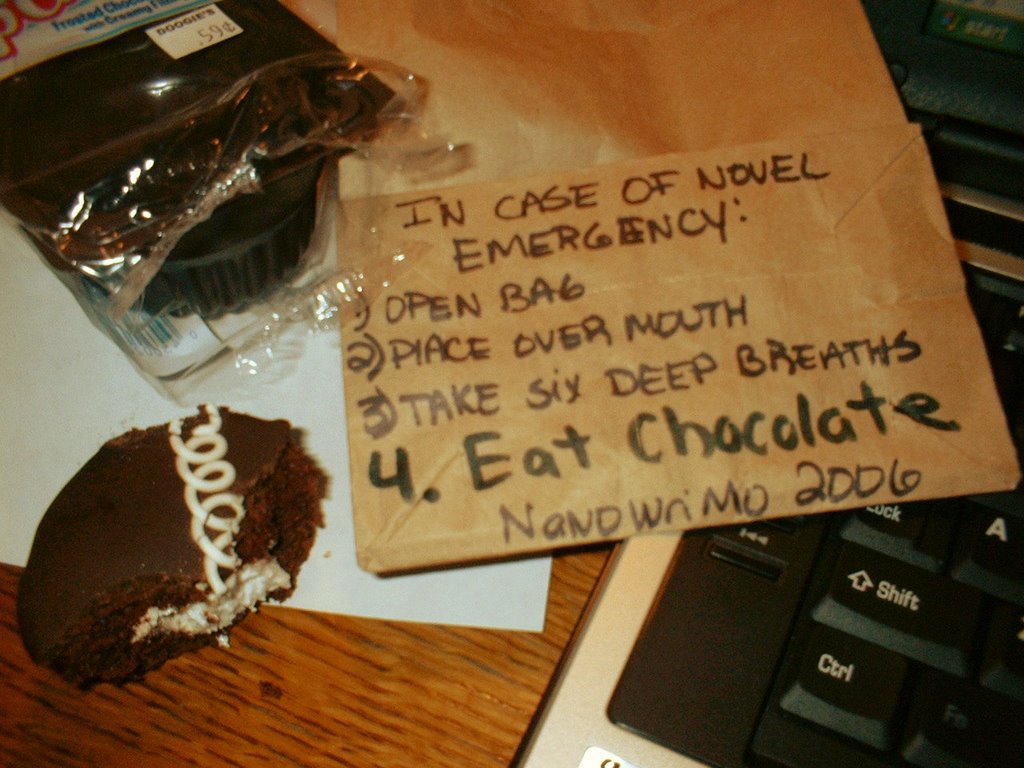 Frosted Choco
with Creamy Filli
DOOGIE'S
.59¢
start
IN CASE OF NOVEL
EMERGENCY:
1) OPEN BAG
2) PLACE OVER MOUTH
3) TAKE SIX DEEP BREATHS
4. Eat Chocolate
NaNoWriMo 2006
Lock
A
Shift
Ctrl
Fn